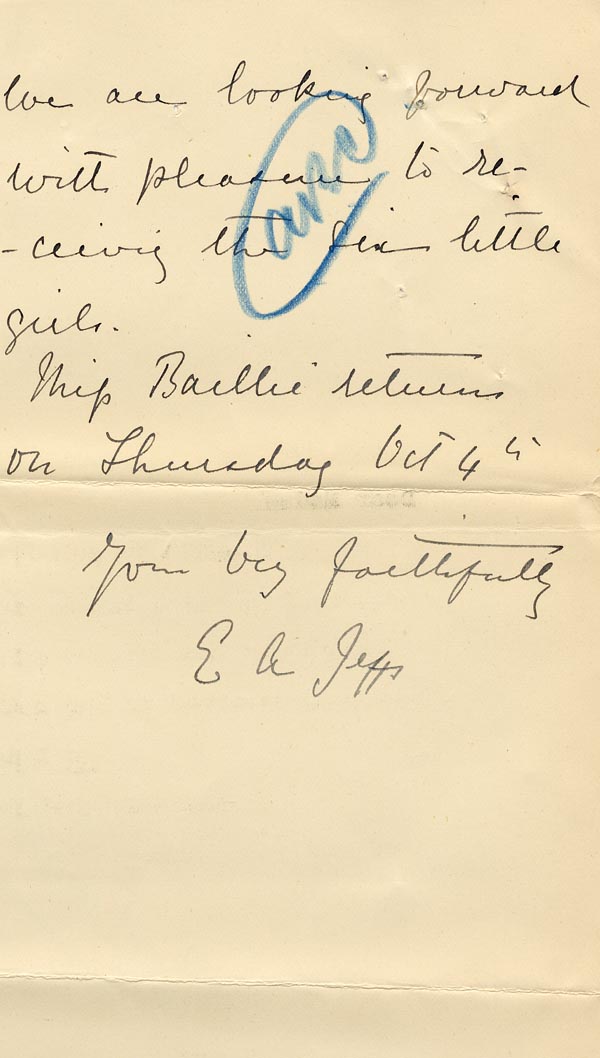 We are looking forward
with pleasure to re-
-ceiving the six little
girls.
Miss Baillie returns
on Thursday Oct 4th
Yours very faithfully
E A Jeffs